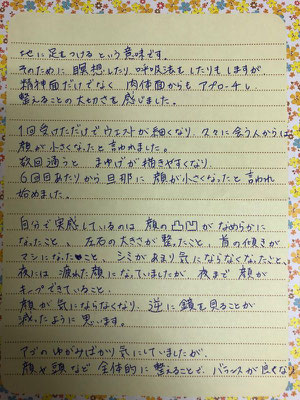 地に足をつける という意味です。
そのために 瞑想したり 呼吸法をしたりもしますが
精神面だけでなく 肉体面からも アプローチし
整えることの大切さを 感じました。
1回受けただけで ウエストが細くなり、久々に会う人からは
顔が小さくなったと言われました。
数回通うと まゆげが描きやすくなり
6回目あたりから 旦那に 顔が小さくなったと 言われ
始めました。
自分で実感しているのは 顔の凸凹がなめらかに
なったこと、左右の大きさが整ったこと、首の傾きが
マシになったこと、シミがあまり気にならなくなったこと、
夜には 疲れた顔になっていましたが 夜まで 顔が
キープできていること
顔が気にならなくなり、逆に 鏡を見ることが
減ったように思います。
アゴのゆがみばかり気にしていましたが
顔や頭など 全体的に 整えることで、バランスが良くな